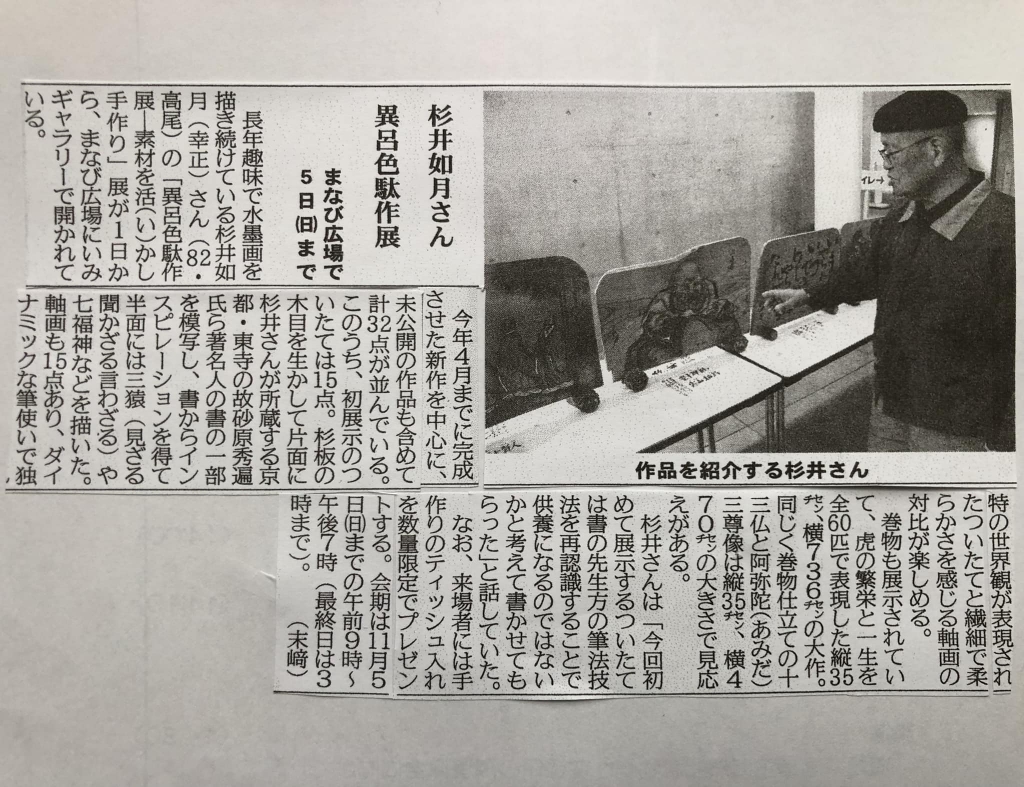 杉井如月さん
異呂色駄作展
まなび広場で
5日㈰まで
長年趣味で水墨画を
描き続けている杉井如
月（幸正）さん（82・
高尾）の「異呂色駄作
展―素材を活（い）かし
手作り」展が1日か
ら、まなび広場にいみ
ギャラリーで開かれて
いる。
今年4月までに完成
させた新作を中心に、
未公開の作品も含めて
計32点が並んでいる。
このうち、初展示のつ
いたては15点。杉板の
木目を生かして片面に
杉井さんが所蔵する京
都・東寺の故砂原秀遍
氏ら著名人の書の一部
を模写し、書からイン
スピレーションを得て
半面には三猿（見ざる
聞かざる言わざる）や
七福神などを描いた。
軸画も15点あり、ダイ
ナミックな筆使いで独
特の世界観が表現され
たついたてと繊細で柔
らかさを感じる軸画の
対比が楽しめる。
巻物も展示されてい
て、虎の繁栄と一生を
全60匹で表現した縦35
㌢、横736㌢の大作。
同じく巻物仕立ての十
三仏と阿弥陀（あみだ）
三尊像は縦35㌢、横4
70㌢の大きさで見応
えがある。
杉井さんは「今回初
めて展示するついたて
は書の先生方の筆法技
法を再認識することで
供養になるのではない
かと考えて書かせても
らった」と話していた。
なお、来場者には手
作りのティッシュ入れ
を数量限定でプレゼン
トする。会期は11月5
日㈰までの午前9時～
午後7時（最終日は3
時まで）。（末﨑）
作品を紹介する杉井さん
イレ→